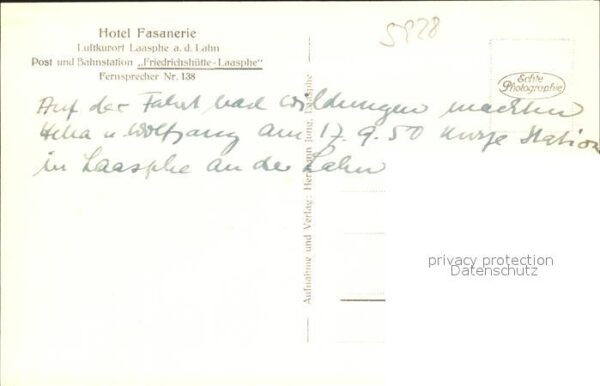 Hotel Fasanerie
Luftkurort Laasphe a. d. Lahn
Post und Bahnstation „Friedrichshütte-Laasphe“
Fernsprecher Nr. 138
5928
Echte
Photographie
Auf der Fahrt bad Wildungen machten
u Wolfgang am 17.9.50 kurze Station
in Laasphe an der Lahn
Aufnahme und Verlag: Hermann Jung, Laasphe
privacy protection
Datenschutz